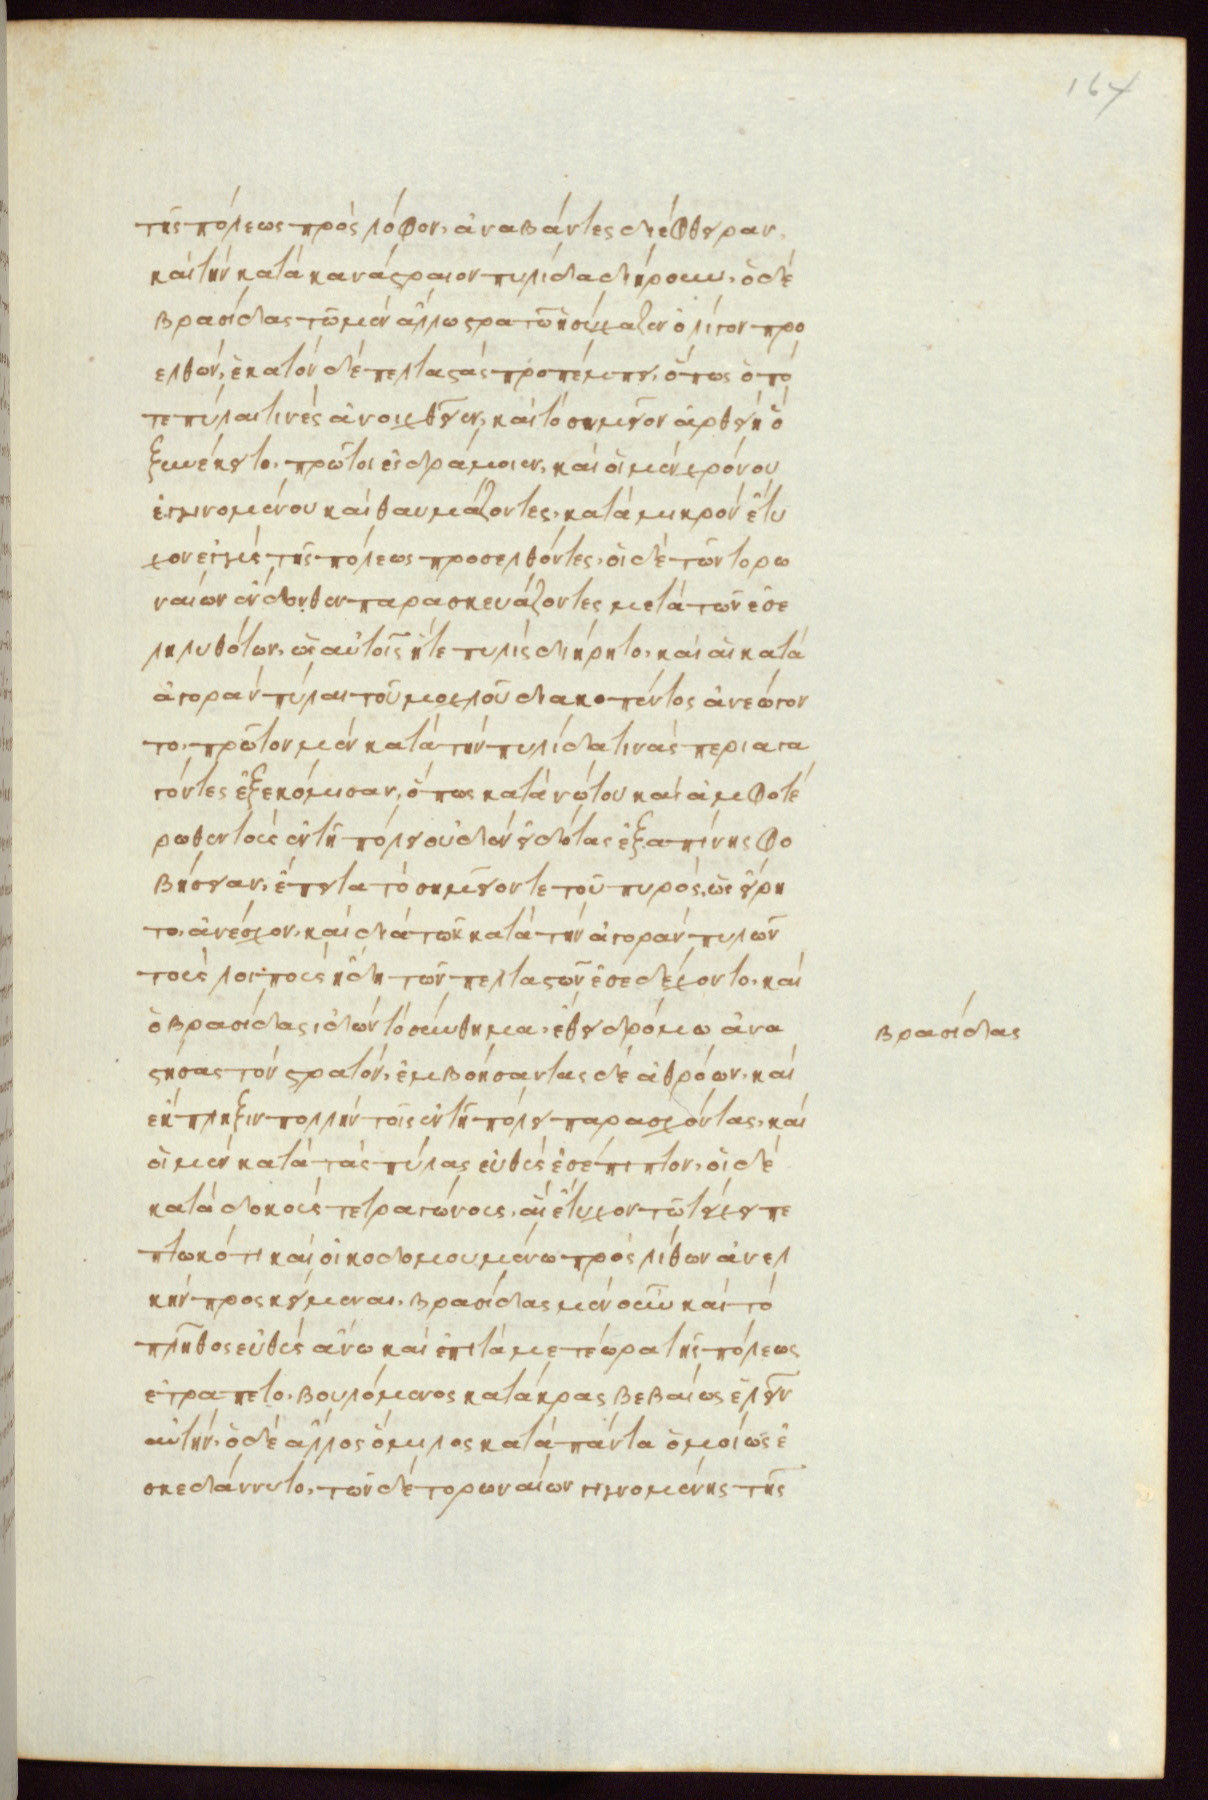 164
τῆς πόλεως πρὸς λόφον, ἀναβάντες διέφθειραν,
καὶ τὴν κατὰ καναστραιον πυλίδα διήρουν, ὁ δὲ
βρασίδας τῶ μὲν ἄλλω στρατῶ ἡσύχαζεν ὀλίγον προ
ελθὼν, ἑκατὸν δὲ πελταστὰς προπέμπει, ὅπως ὁπό
τε πύλαι τινὲς ἀνοιχθεῖεν, καὶ τὸ σημεῖον ἀρθείη ὃ
ξυνέκειτο, πρῶτοι ἐσδράμοιεν, καὶ οἱ μὲν χρόνου
ἐγγινομένου καὶ θαυμάζοντες, κατὰ μικρὸν ἔτυ
χον ἐγγὺς τῆς πόλεως προσελθόντες, οἱ δὲ τῶν τορω
ναίων ἔνδονθεν παρασκευάζοντες μετὰ τῶν ἐσε
ληλυθότων, ὡς αὐτοῖς ἥτε πυλὶς διήρητο, καὶ αἱ κατὰ
ἀγορὰν πύλαι τοῦ μοχλοῦ διακοπέντος ἀνεώγον
το, πρῶτον μὲν κατὰ τὴν πυλίδα τινὰς περιαγα
γόντες ἐξεκόμισαν, ὅπως κατὰ νώτου καὶ ἀμφοτέ
ρωθεν τοὺς ἐν τῆ πόλει οὐδὲν εἰδότας ἐξαπίνης φο
βήσειαν, ἔπειτα τὸ σημεῖον τε τοῦ πυρὸς, ὡς εἴρη
το, ἀνέσχον, καὶ διὰ τῶν κατὰ τὴν ἀγορὰν πυλῶν
τοὺς λοιποὺς ἤδη τῶν πελταστῶν ἐσεδέχοντο, καὶ
ὁ βρασίδας ἰδὼν τὸ σύνθημα, ἔθει δρόμω ἀνα
στήσας τὸν στρατὸν, ἐμβοήσαντας δὲ ἀθρόων, καὶ
ἔκπληξιν πολλὴν τοῖς ἐν τῆ πόλει παρασχόντας, καὶ
οἱ μὲν κατὰ τὰς πύλας εὐθὺς ἐσέπιπτον, οἱ δὲ
κατὰ δοκοὺς τετραγώνους, αἳ ἔτυχον τῶ τείχει πε
πτωκότι καὶ οἰκοδομουμένω πρὸς λίθων ἀνελ
κὴν προσκείμεναι, βρασίδας μὲν οὖν καὶ τὸ
πλῆθος εὐθὺς ἄνω καὶ ἐπὶ τὰ μετέωρα τῆς πόλεως
ἐτράπετο, βουλόμενος κατάκρας βεβαίως ἑλεῖν
αὐτὴν, ὁ δὲ ἄλλος ὅμιλος κατὰ πάντα ὁμοίως ἐ
σκεδάννυτο, τῶν δὲ τορωναίων γιγνομένης τῆς
βρασίδας